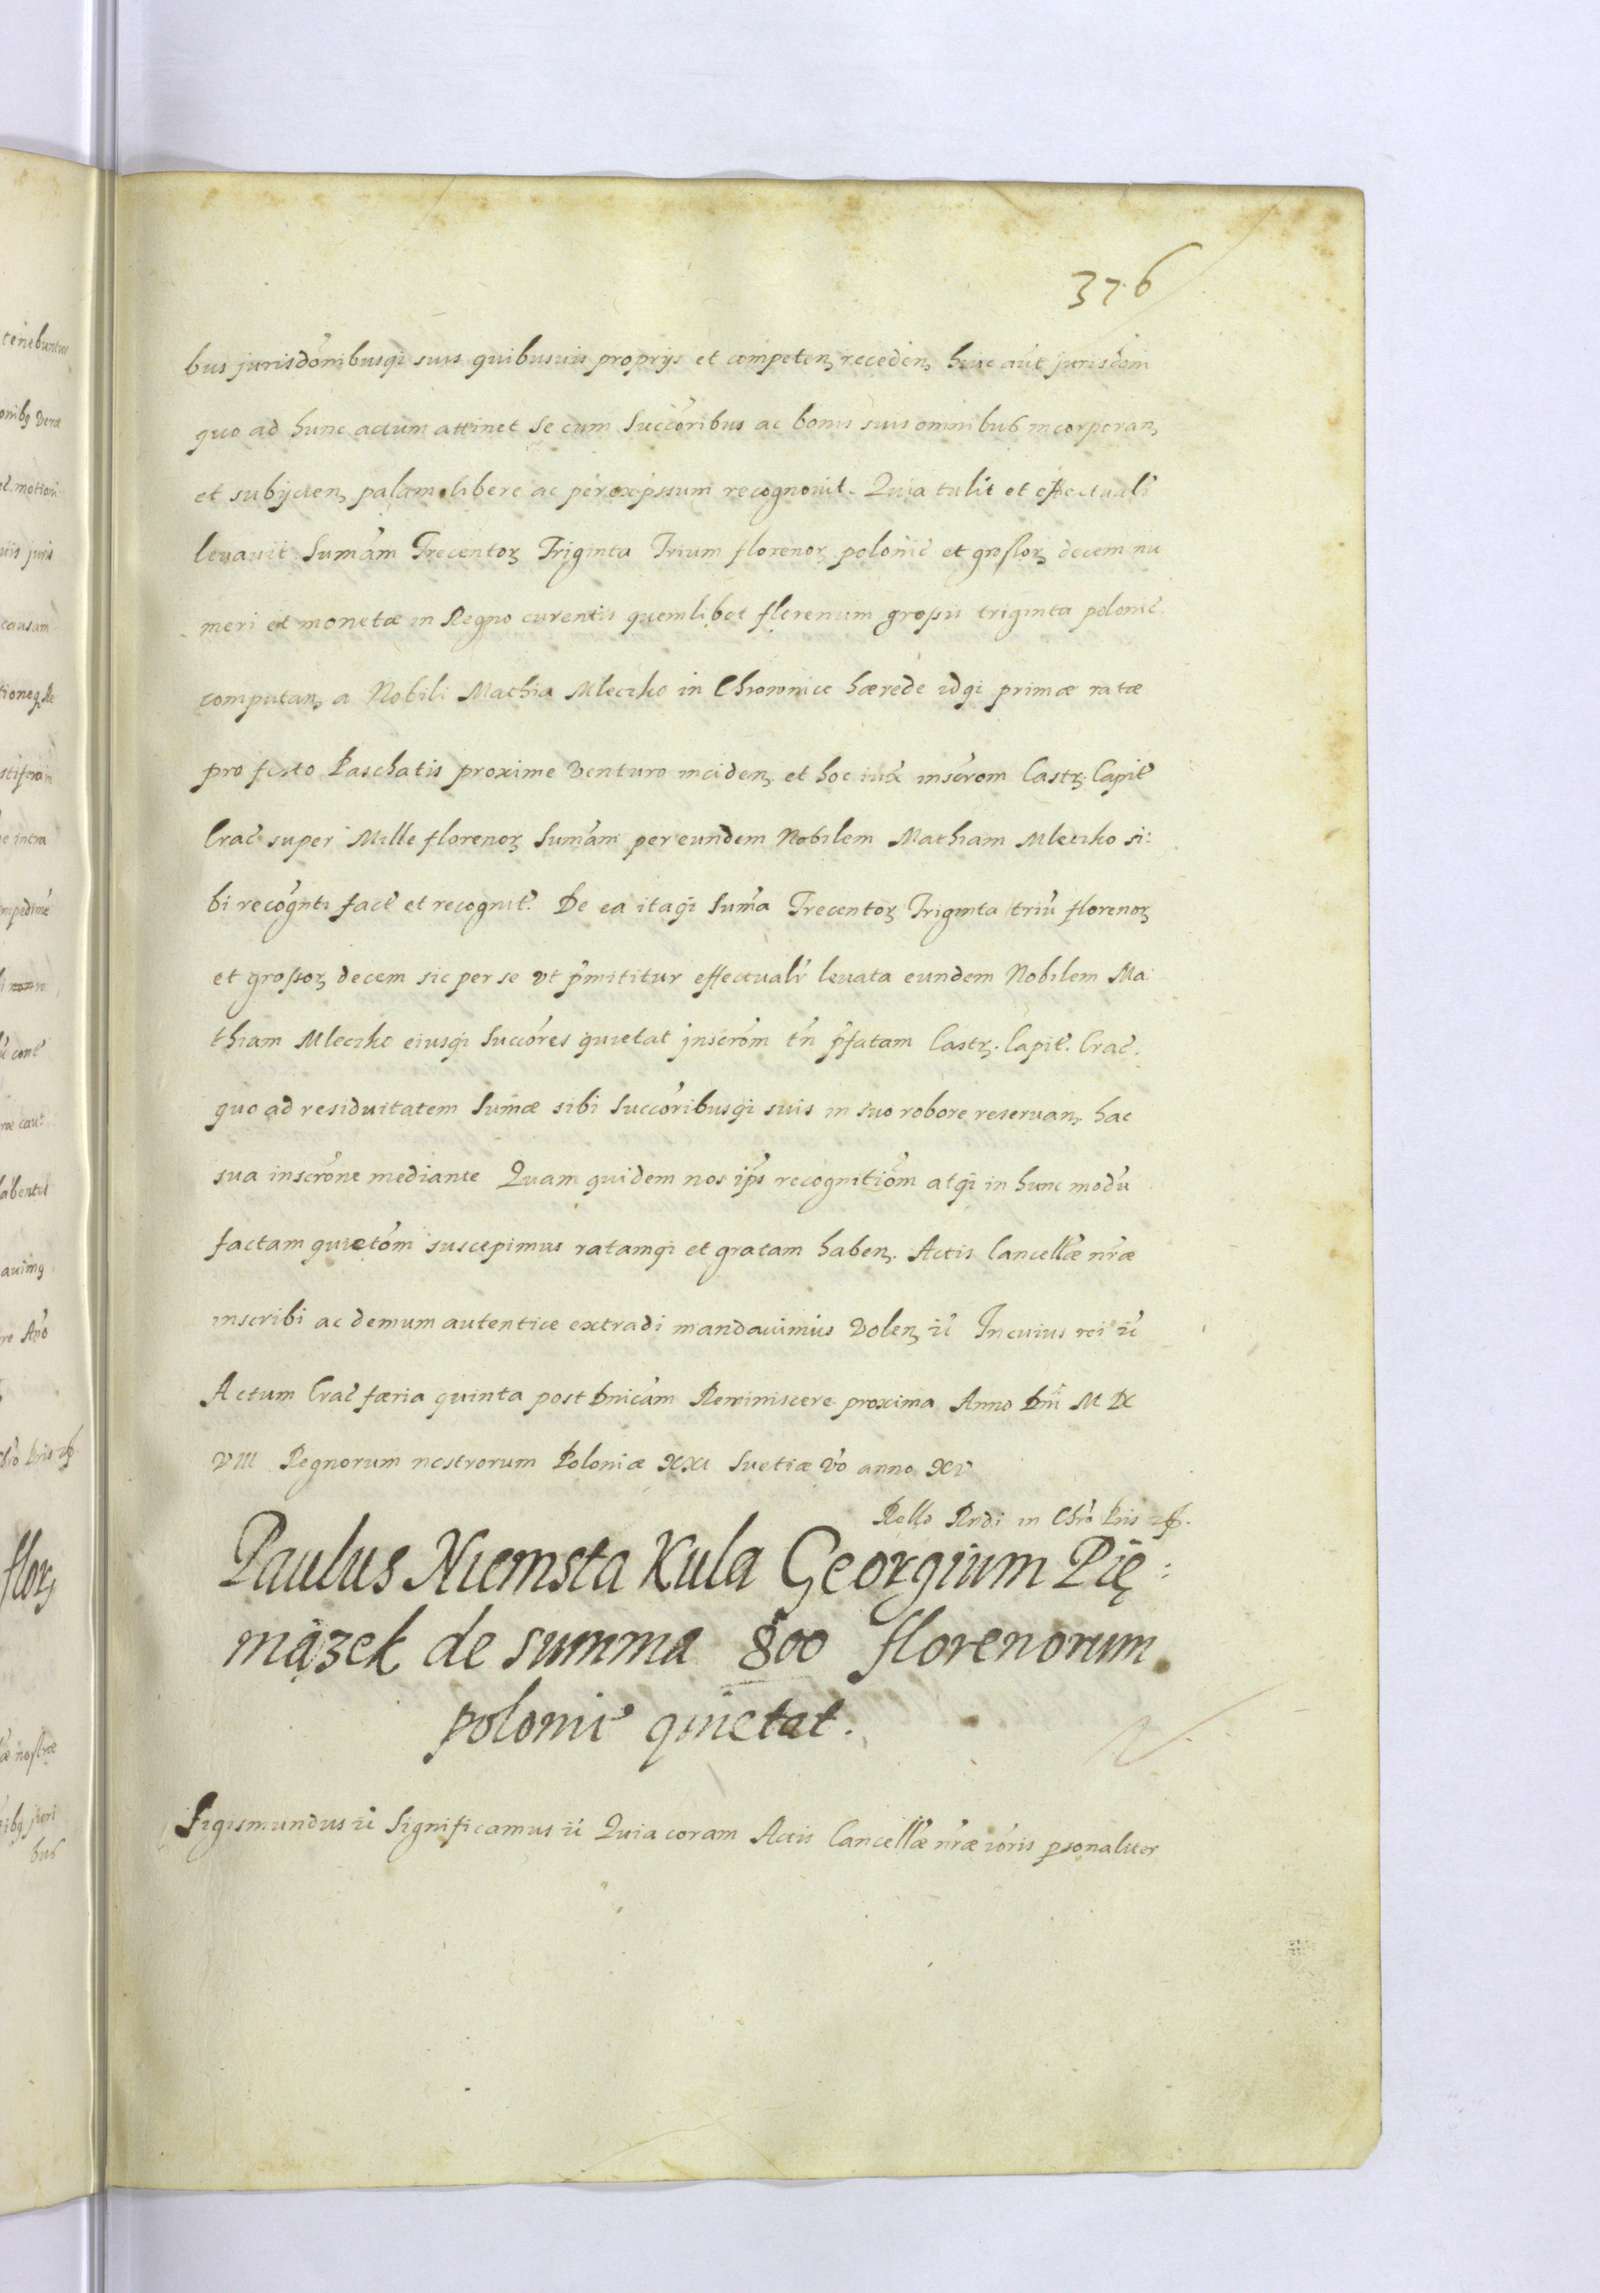 376
bus jurisdõnibusqꝫ suis quibusuis proprijs et competenꝫ recedenꝫ huic aũt jurisdõni
quo ad hunc actum attinet se cum Succõribus ac bonis suis omnibus incorporanꝫ
et subijcienꝫ palam libere ac per expssum recognouit. Quia tulit et effectualr̃
leuauit Sumãm Trecentoꝝ Triginta Trium florenoꝝ polonic̃ et grossoꝝ decem nu
meri et monetæ in Regno curentis quemlibet florenum grossis triginta polonic̃.
computanꝫ a Nobili Mathia Mleczko in Chronnice hærede idqꝫ primæ ratæ
pro festo Paschatis proxime venturo incidenꝫ et hoc iux̃ inscr̃om Castꝝ. Capit̃
Crac̃ super Mille florenoꝝ Sumãm per eundem Nobilem Mathiam Mleczko si:
bi recõgnti fact̃ et recognit̃. De ea itaqꝫ Sum̃a Trecentoꝝ Triginta triũ florenoꝝ
et grossoꝝ decem sic per se vt p̃mititur effectualr̃ leuata eundem Nobilem Ma
thiam Mleczko eiusqꝫ Succõres quietat jnscr̃om tñ p̃fatam Castꝝ. Capit̃. Crac̃.
quo ad residuitatem Sum̃æ sibi Succõribusqꝫ suis in suo robore reseruanꝫ hac
sua inscr̃one mediante Quam quidem nos ip̃s recognitiõm atqꝫ in hunc modũ
factam quietõm suscepimus ratamqꝫ et gratam habenꝫ. Actis Cancellæ̃ nr̃æ
inscribi ac demum autentice extradi mandauimus volenꝫ ič In cuius rei ič
Actum Crac̃ færia quinta post Dnicãm Reminiscere proxima Anno Dnĩ M DC
VIII Regnorum nostrorum Poloniæ XXI Suetiæ võ anno XV
Rello Rndi in Chrõ Pris
Paulus Niemsta Kula Georgium Pię:
mązek de summa 800 florenorum
polonic̃ quietat.
Sigismundus ič Significamus ič Quia coram Actis Cancellæ̃ nr̃æ iõris psonaliter